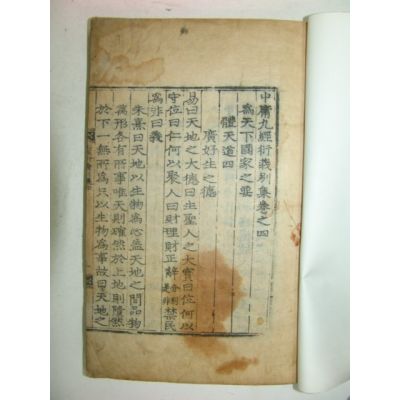 中庸九經衍義別集卷之四
爲天下國家之要
體天道四
廣好生之德
易曰天地之大德曰生聖人之大寶曰位何以
守位曰仁何以聚人曰財理財正辭分別是非禁民
爲非曰義
朱熹曰天地以生物爲心盖天地之間品物
萬形各有所事唯天則確然於上地則隤然
於下一無所爲只以生物爲事故曰天地之